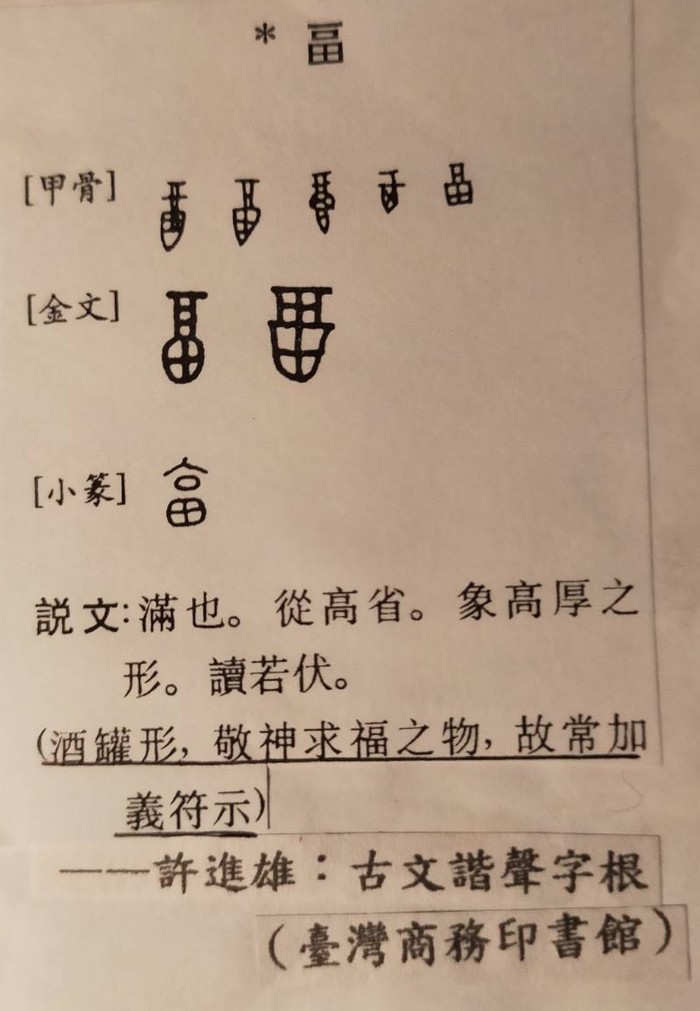 * 畐
[甲骨]
[金文]
[小篆]
説文:滿也。從高省。象高厚之
形。讀若伏。
(酒罐形,敬神求福之物,故常加
義符示)
——許進雄:古文諧聲字根
(臺灣商務印書館)